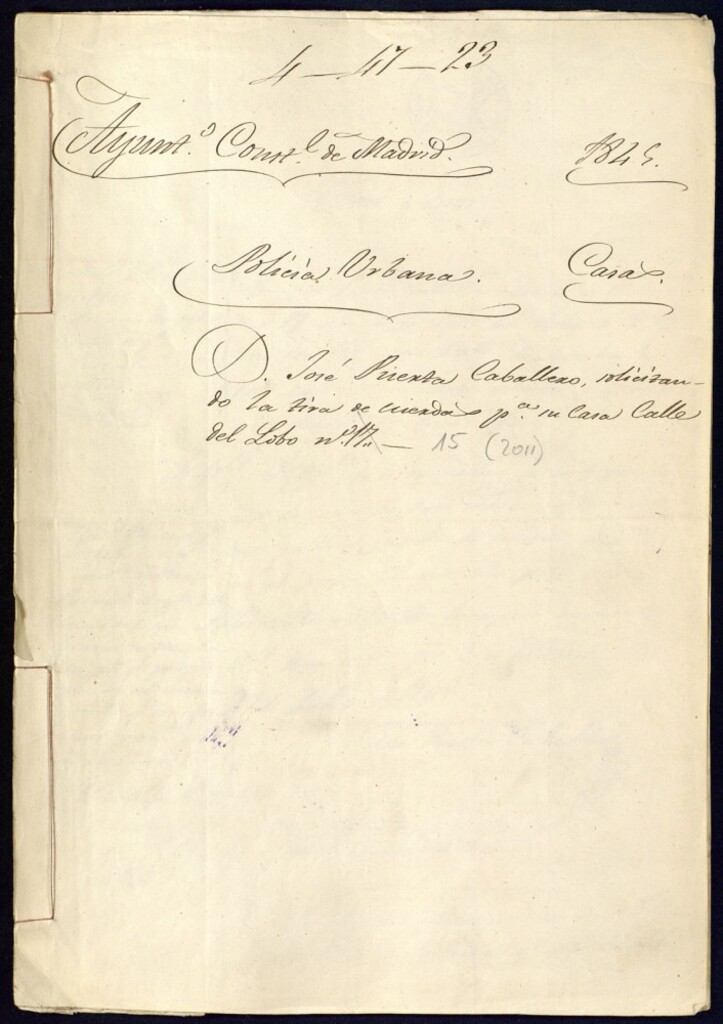 4-47-23
Ayunt.º Const.l de Madrid. 1845.
Policía Urbana. Casas.
D. José Puerta Caballero, solicitan-
do la tira de cuerdas p.ª su Casa Calle
del Lobo nº. 17. — 15 (2011)